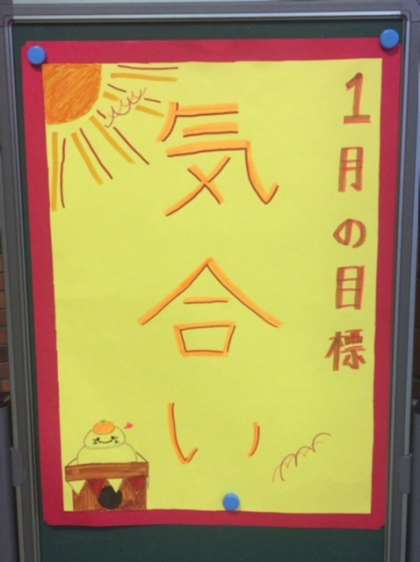 1月の目標
気合い